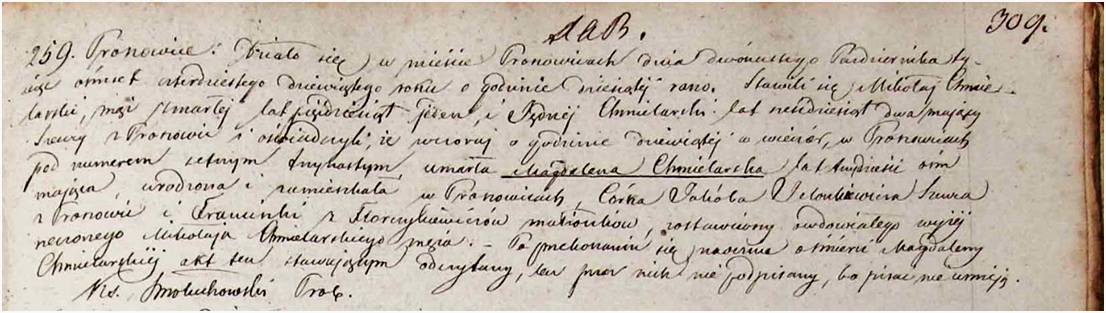 309.
259. Pronowice: Działo się w mieście Pronowicach dnia dwónastego Pazdziernika ty-
siąc ośmset czterdziestego dziewiątego roku o godzinie dziesiątej rano. Stawili się Mikołaj Chmie-
larski, mąż zmarłej lat pięćdziesiąt jeden i Jędrzej Chmielarski lat
szewcy z Pronowic i oświadczyli, iż wczoraj o godzinie dziewiątej w wieczór, w Pronowicach
pod numerem setnym trzynastym, umarła Magdalena Chmielarska lat trzydzieści ośm
mająca, urodzona i zamieszkała w Pronowicach, Córka Jakóba szewca
z Pronowic i Franciszki z Florczykiewiczów małżonków, zostawiwszy owdowiałego wyżej
rzeczonego Mikołaja Chmielarskiego męża. – Po przekonaniu się naocznie o śmierci Magdaleny
Chmielarskiej akt ten stawającym odczytany, lecz przez nich nie podpisany, bo pisać nie umieją.
Xs. Smoluchowski Prob.